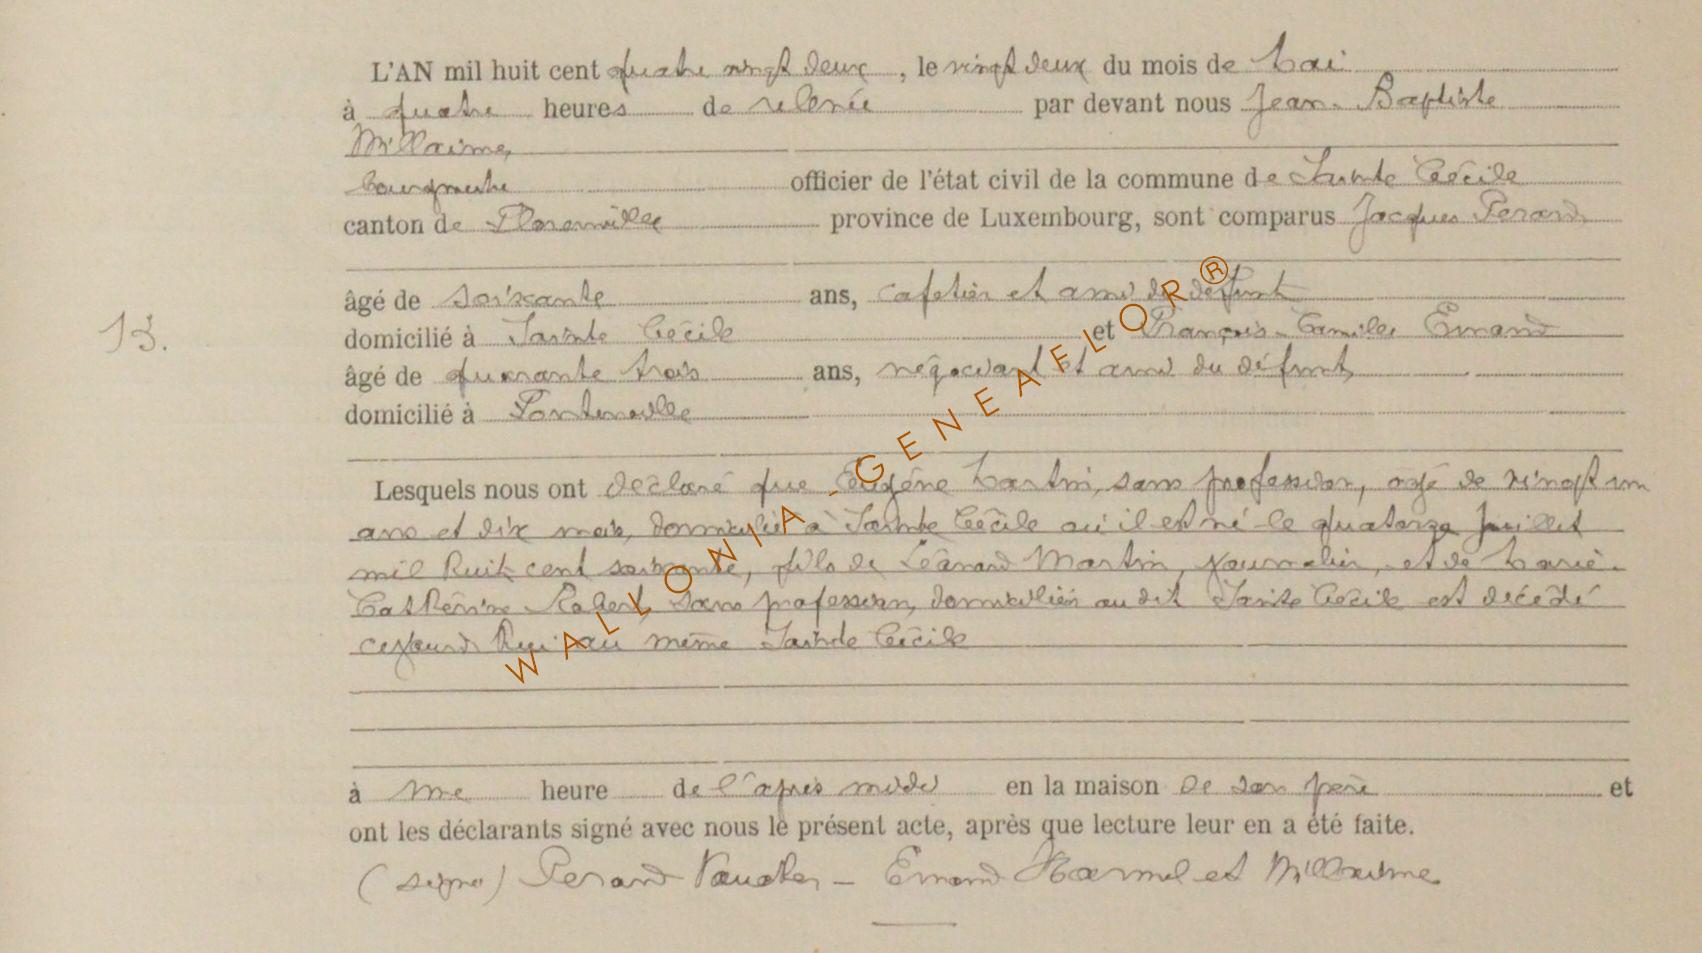 L'AN mil huit cent quatre vingt deux, le vingt deux du mois de Mai
à quatre heures de relevée par devant nous Jean-Baptiste
Millaime,
bourgmestre officier de l'état civil de la commune de Sainte Cécile
canton de Florenville province de Luxembourg, sont comparus Jacques Perard
âgé de soixante ans, cafetier et ami du défunt
domicilié à Sainte Cécile et François-Camille Emond
13.
âgé de quarante trois ans, négociant et ami du défunt,
domicilié à Fontenoille
Lesquels nous ont déclaré que Eugène Martin, sans profession, agé de vingt un
ans et dix mois, domicilié à Sainte Cécile où il est né le quatorze Juillet
mil huit cent soixante, fils de Léonard Martin, journalier, et de Marie-
Cathérine Robert sans profession, domiciliés au dit Sainte Cécile est décédé
cejourd'hui au même Sainte Cécile
à une heure de l'après midi en la maison de son père et
ont les déclarants signé avec nous le présent acte, après que lecture leur en a été faite.
(signé) Perard - Emond Harmel et Millaime
WALLONIA - GENEAFLOR®